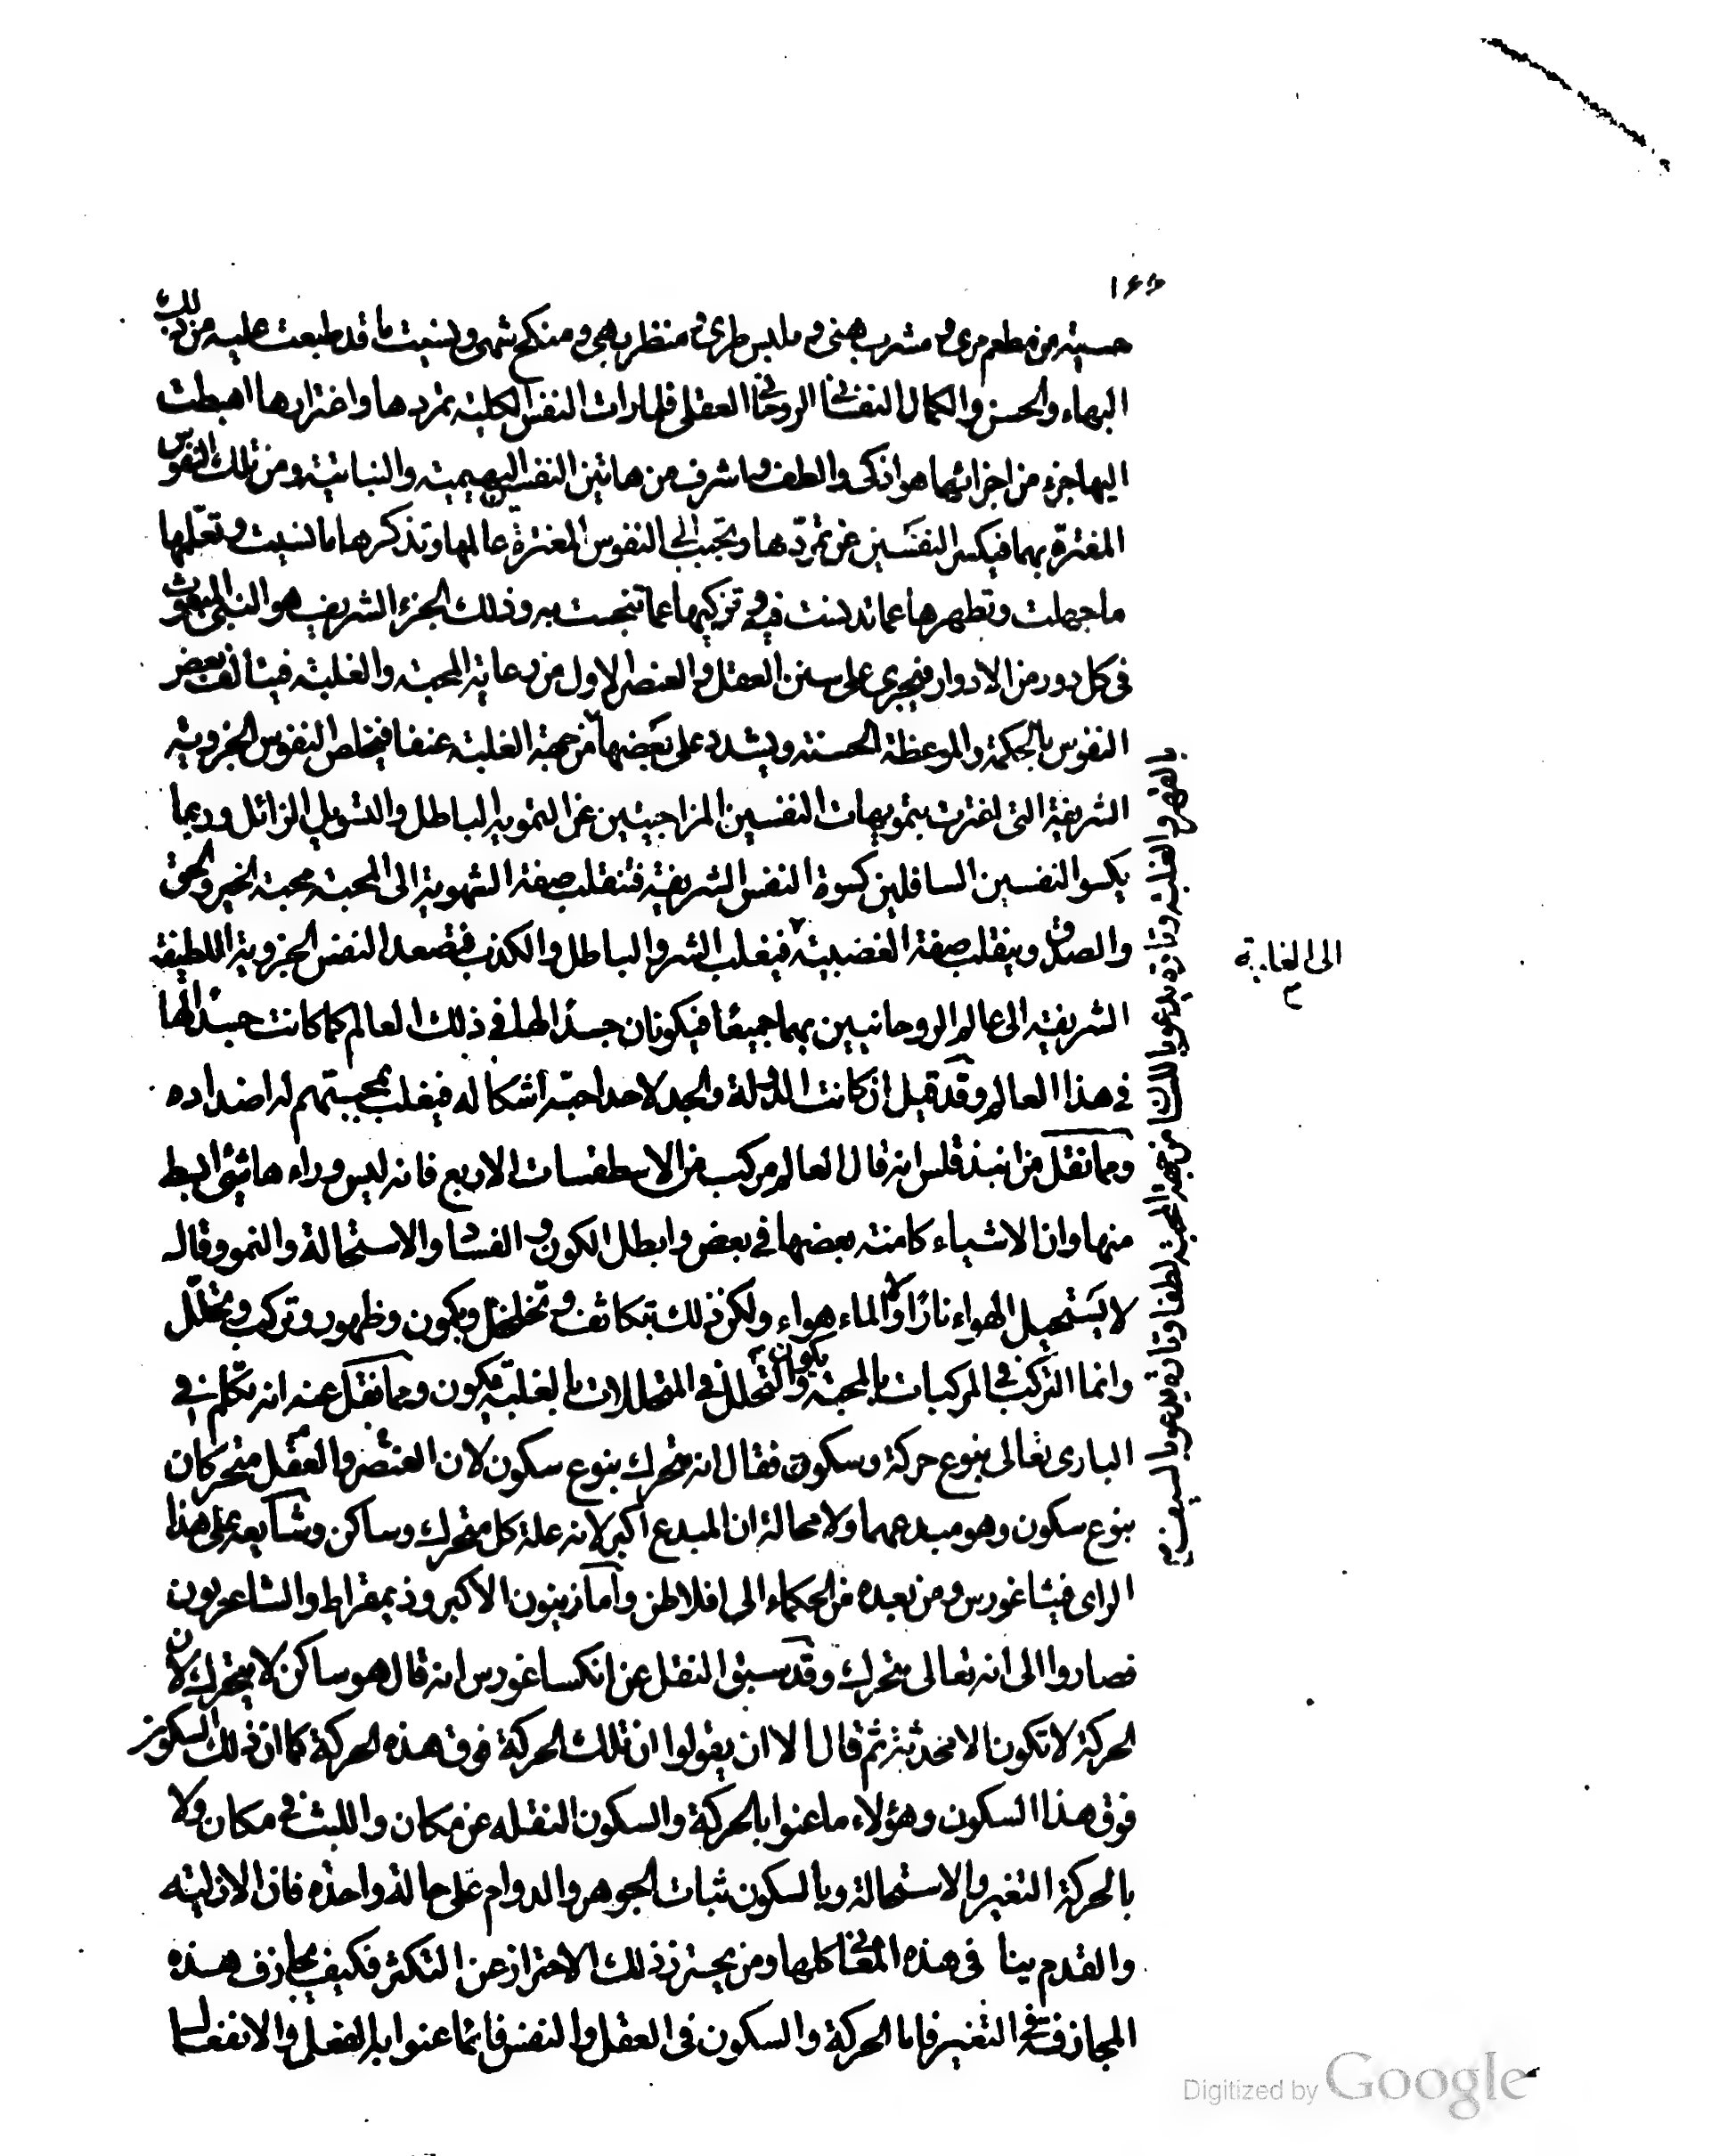 ١٦٥
حسية من مطعم مرى ومشرب هنى وملبس طرى ومنظر بهى ومنكح شهى ونسيت ما قد طبعت عليه من ذلك
البهاء والحسن والكمال النفسانى الروحانى العقلى فلما رات النفس الكلية تمردها واغترارها اهبطت
اليها جزء من اجزائها هو اذكى والطف واشرف من هاتين النفسين البهيمية والنباتية ومن تلك النفوس
المغترة بهما فيكسر النفسين عن تمردها ويحبب الى النفوس المغترة عالمها وتذكرها ما نسيت وتعلمها
ما جهلت وتطهرها عما تدنست فيه وتزكيها عما تنجست به وذلك الجزء الشريف هو النبى المبعوث
فى كل دور من الادوار فيجرى على سنن العقل والعنصر الاول من رعاية المحبة والغلبة فيتالف بعض
النفوس بالحكمة والموعظة الحسنة ويشدد على بعضها من جهة الغلبة عنفا فيخلص النفوس الجزوية
الشريفة التى اغترت بتمويهات النفسين المزاجيتين عن التمويه الباطل والتسويل الزائل وربما
يكسو النفسين السافلين كسوة النفس الشريفة فتنقلب صفة الشهوية الى المحبة محبة الخير والحق
والصدق وينقلب صفة الغضبية فيغلب الشر والباطل والكذب فتصعد النفس الجزوية اللطيفة
الشريفة الى عالم الروحانيين بهما جميعا فيكونان جسدا لها فى ذلك العالم كما كانت جسدا لها
فى هذا العالم وقد قيل ان كانت الدولة والجد لاحد احبه اشكاله فيغلب بمحبتهم له اضداده
ومما نقل من انبذقلس انه قال العالم مركب من الاسطقسات الاربع فانه ليس وراءها شئ ابسط
منها وان الاشياء كامنة بعضها فى بعض وابطل الكون والفساد والاستحالة والنمو وقال
لا يستحيل الهواء نارا ولا الماء هواء ولكن ذلك بتكاثف وتخلخل وبكون وظهور وتركب وتحلل
وانما التركب فى المركبات بالمحبة يكون والتحلل فى المتحللات بالغلبة يكون ومما نقل عنه انه تكلم فى
البارى تعالى بنوع حركة وسكون فقال انه متحرك بنوع سكون لان العنصر والعقل متحركان
بنوع سكون وهو مبدعهما ولا محالة ان المبدع اكبر لانه علة كل متحرك وساكن وشايعه على هذا
الراى فيثاغورس ومن بعده من الحكماء الى افلاطن واما زينون الاكبر وذيمقراط والشاعريون
فصاروا الى انه تعالى متحرك وقد سبق النقل عن انكساغورس انه قال هو ساكن لا يتحرك لان
الحركة لا تكون الا محدثة ثم قال الا ان يقولوا ان تلك الحركة فوق هذه الحركة كما ان ذلك السكون
فوق هذا السكون وهؤلاء ما عنوا بالحركة والسكون النقله عن مكان واللبث فى مكان ولا
بالحركة التغير والاستحالة وبالسكون ثبات الجوهر والدوام على حالة واحدة فان الازلية
والقدم ينافى هذه المعانى كلها ومن يحترز ذلك الاحتراز عن التكثر فكيف يجازف هذه
المجازفة فى التغير فاما الحركة والسكون فى العقل والنفس فانما عنوا به الفعل والانفعال
بالقهر والغلبة وتارة يدعو باللسان من جهة المحبة لطفا وتارة يدعو بالسيف
الى الغاية
Digitized by Google